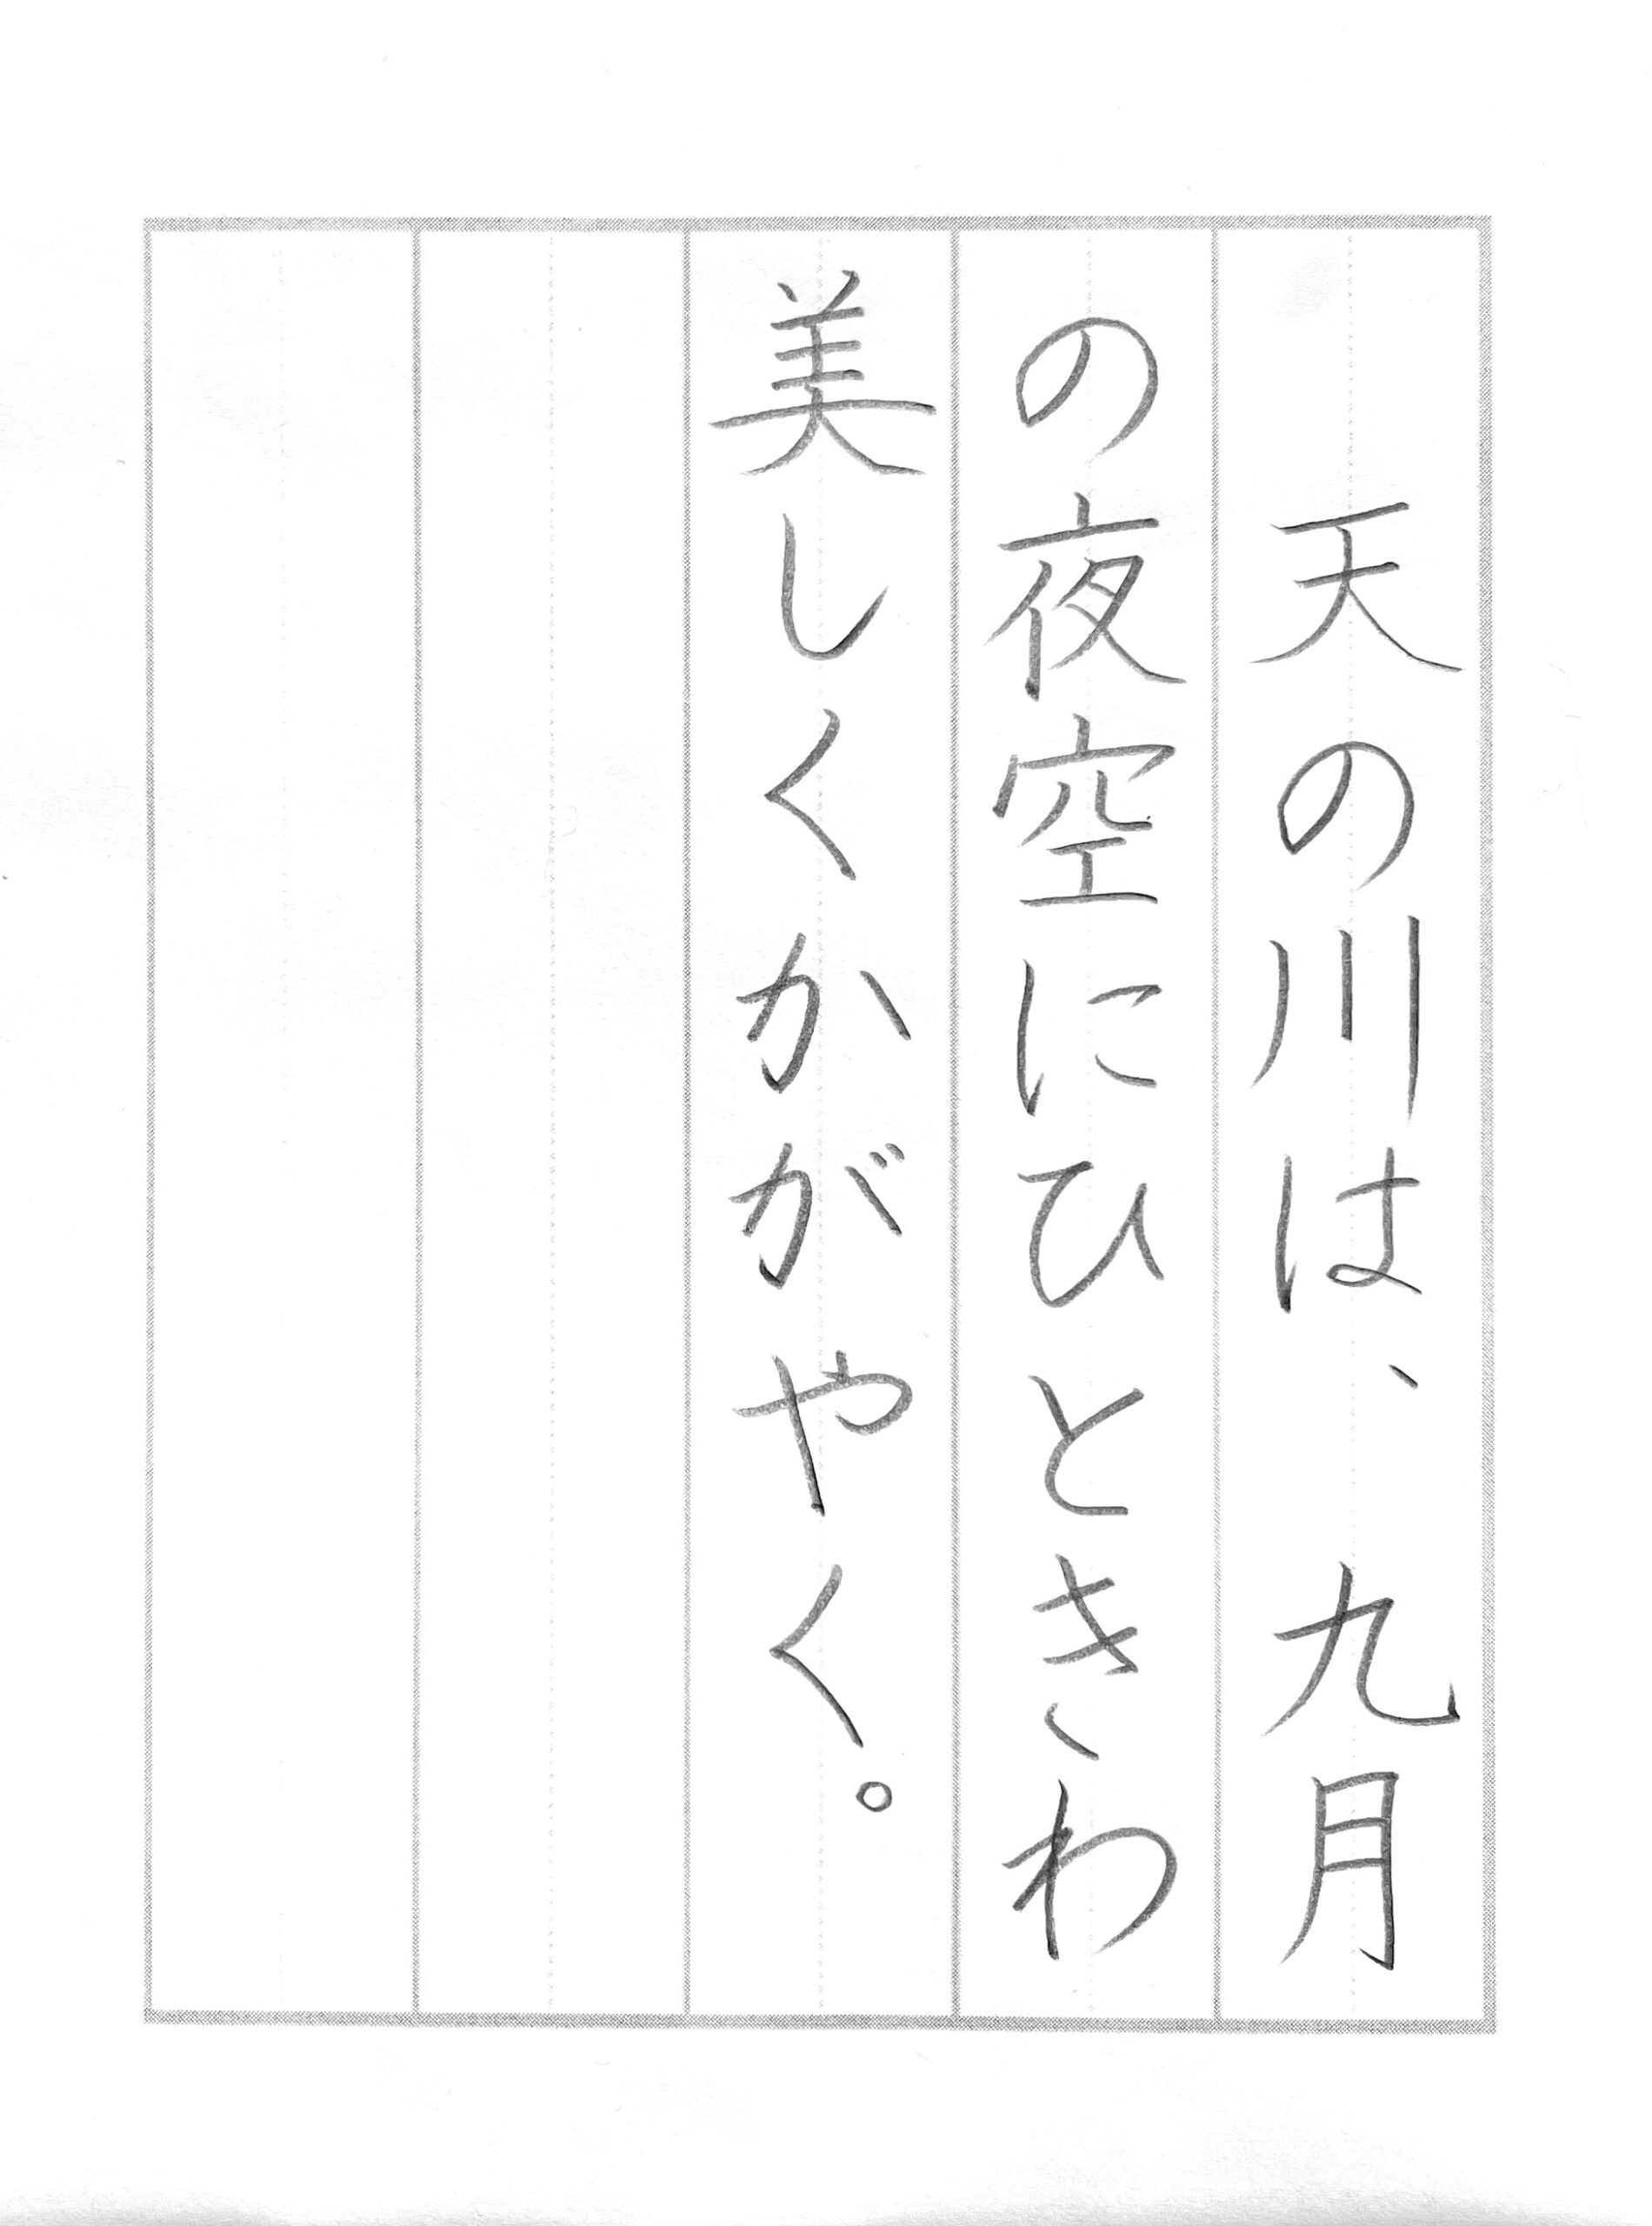 天の川は、九月
の夜空にひときわ
美しくかがやく。